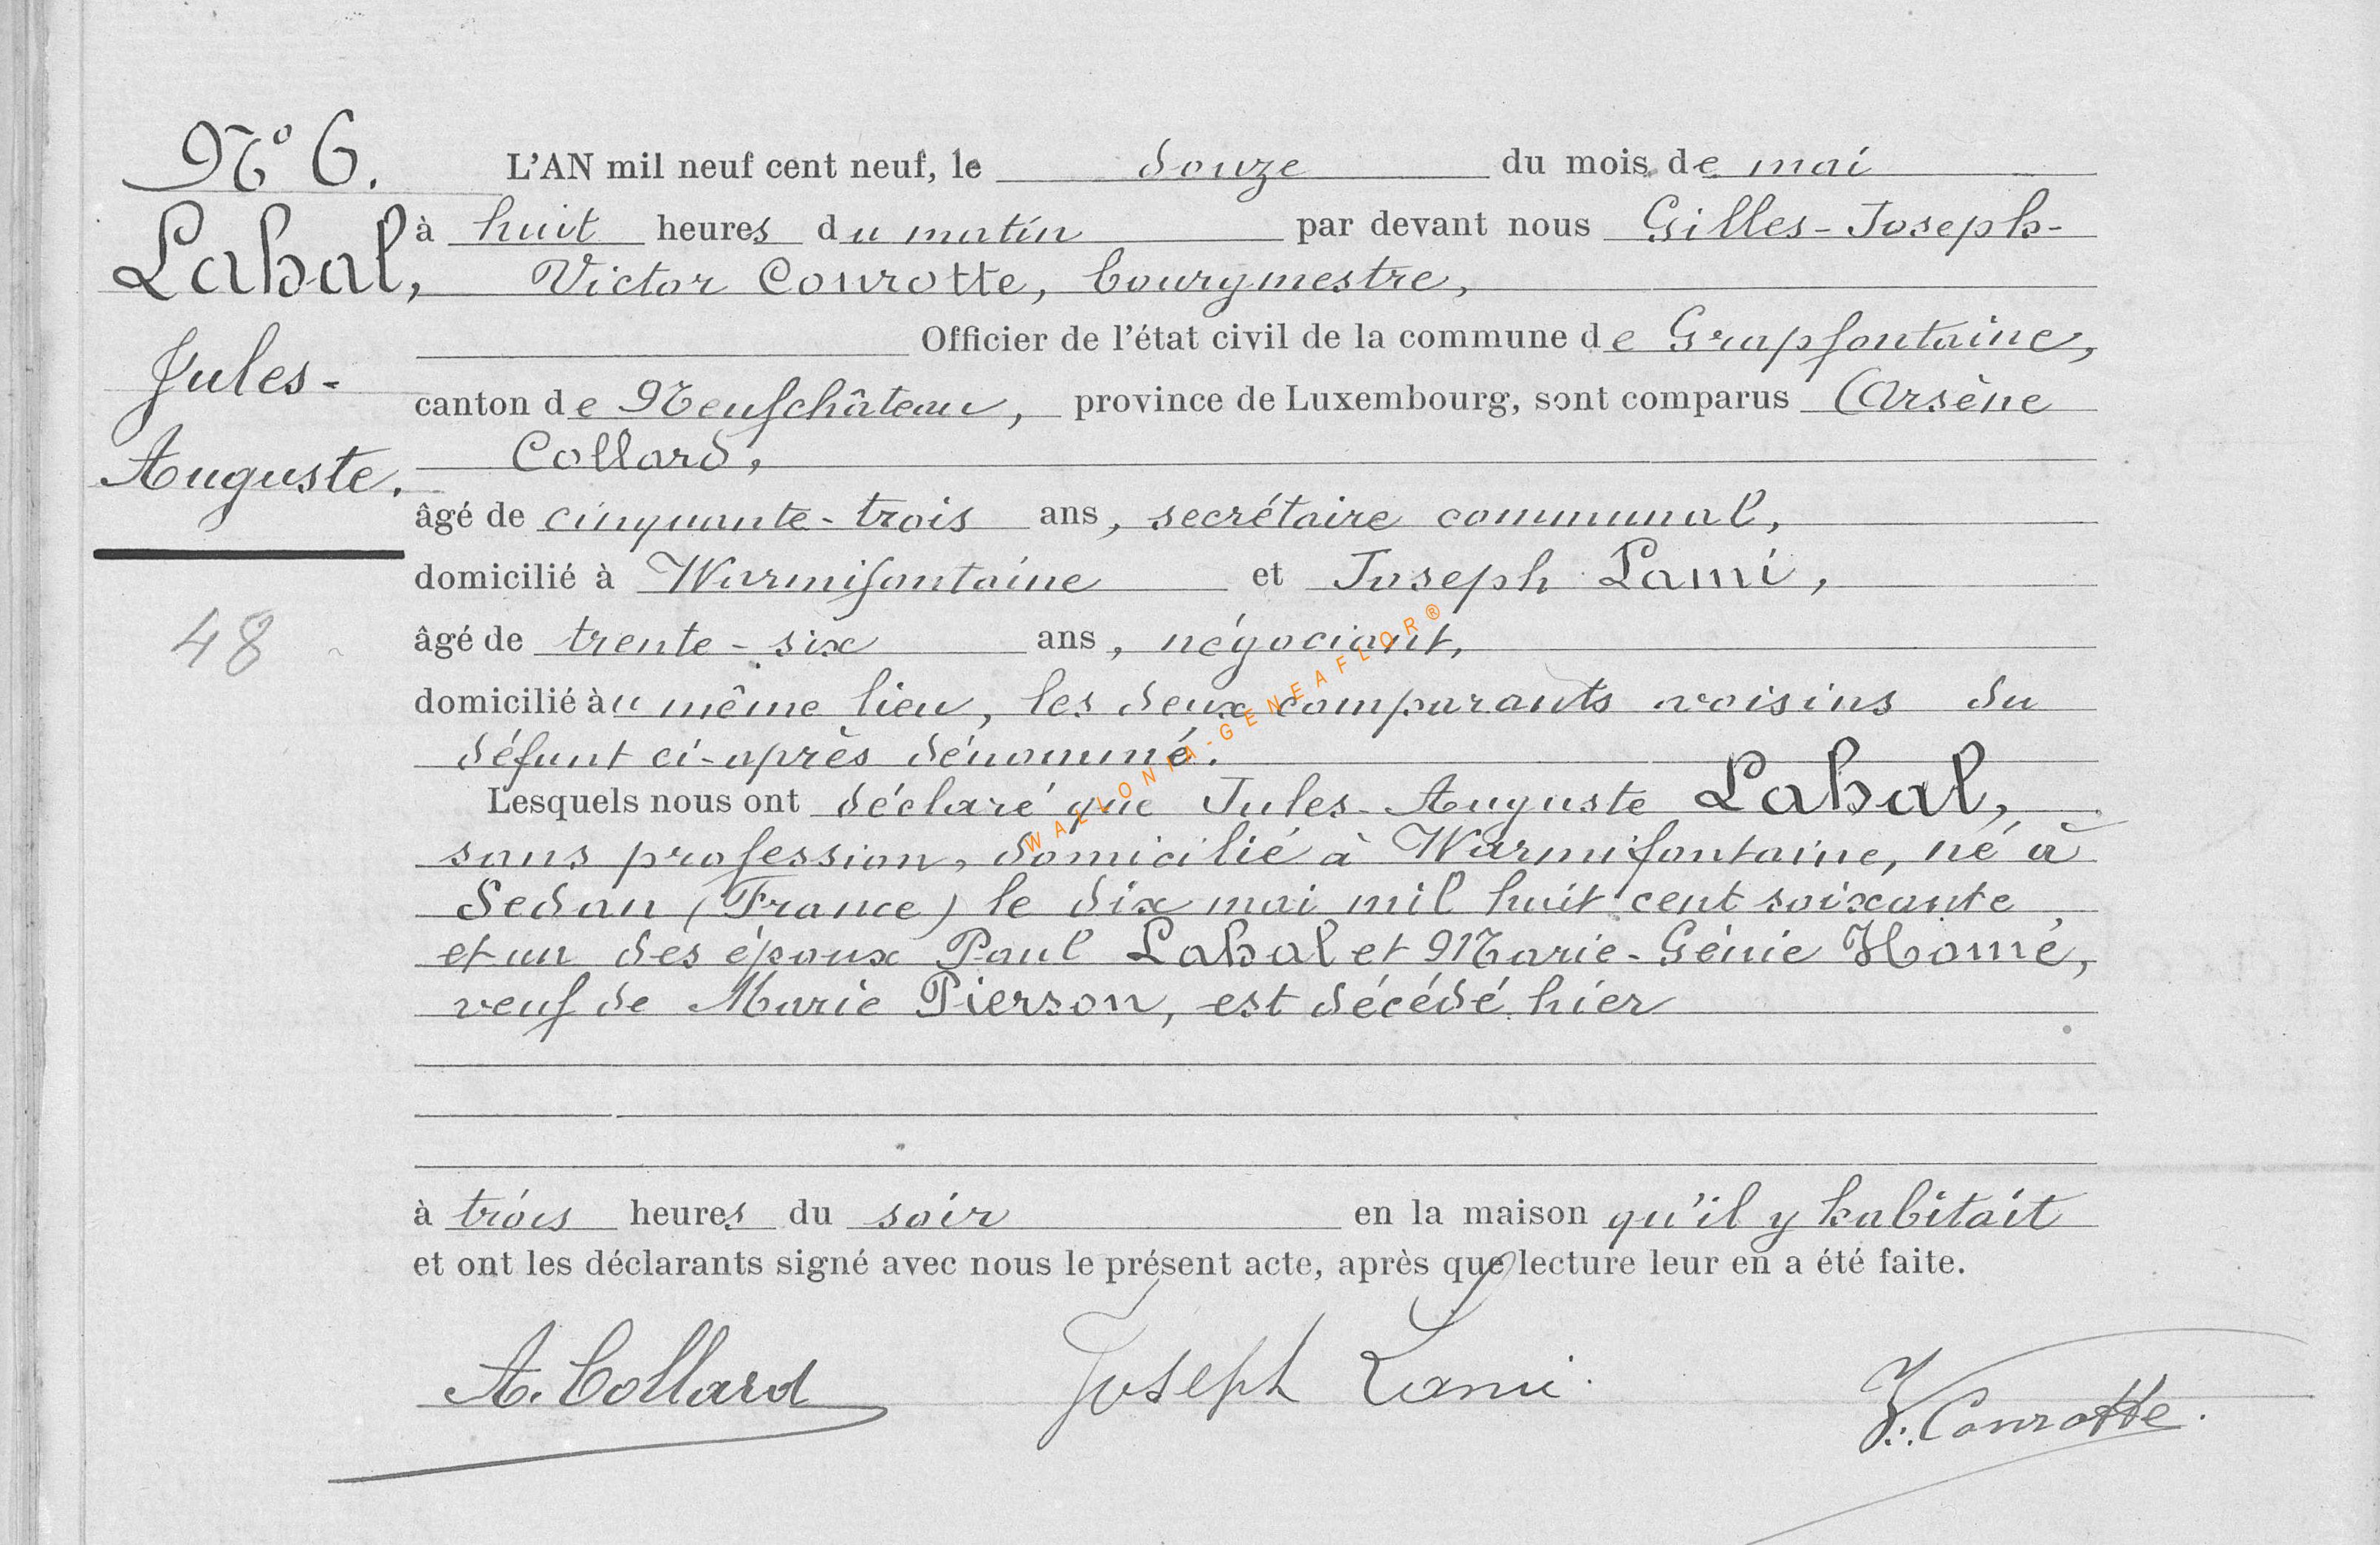 N° 6.
Lahal,
Jules-
Auguste.
48
L'AN mil neuf cent neuf, le douze du mois de mai
à huit heures du matin par devant nous Gilles-Joseph-
Victor Conrotte, bourgmestre,
Officier de l'état civil de la commune de Grapfontaine,
canton de Neufchâteau, province de Luxembourg, sont comparus Arsène
Collard,
âgé de cinquante-trois ans, secrétaire communal,
domicilié à Warmifontaine et Joseph Lami,
âgé de trente-six ans, négociant,
domicilié au même lieu, les deux comparants voisins du
défunt ci-après dénommé.
Lesquels nous ont déclaré que Jules-Auguste Lahal,
sans profession, domicilié à Warmifontaine, né à
Sedan (France) le dix mai mil huit cent soixante
et un des époux Paul Lahal et Marie-Génie Homé,
veuf de Marie Pierson, est décédé hier
à trois heures du soir en la maison qu'il y habitait
et ont les déclarants signé avec nous le présent acte, après que lecture leur en a été faite.
A. Collard Joseph Lami. V. Conrotte.
WALLONIA-GENEAFLOR®